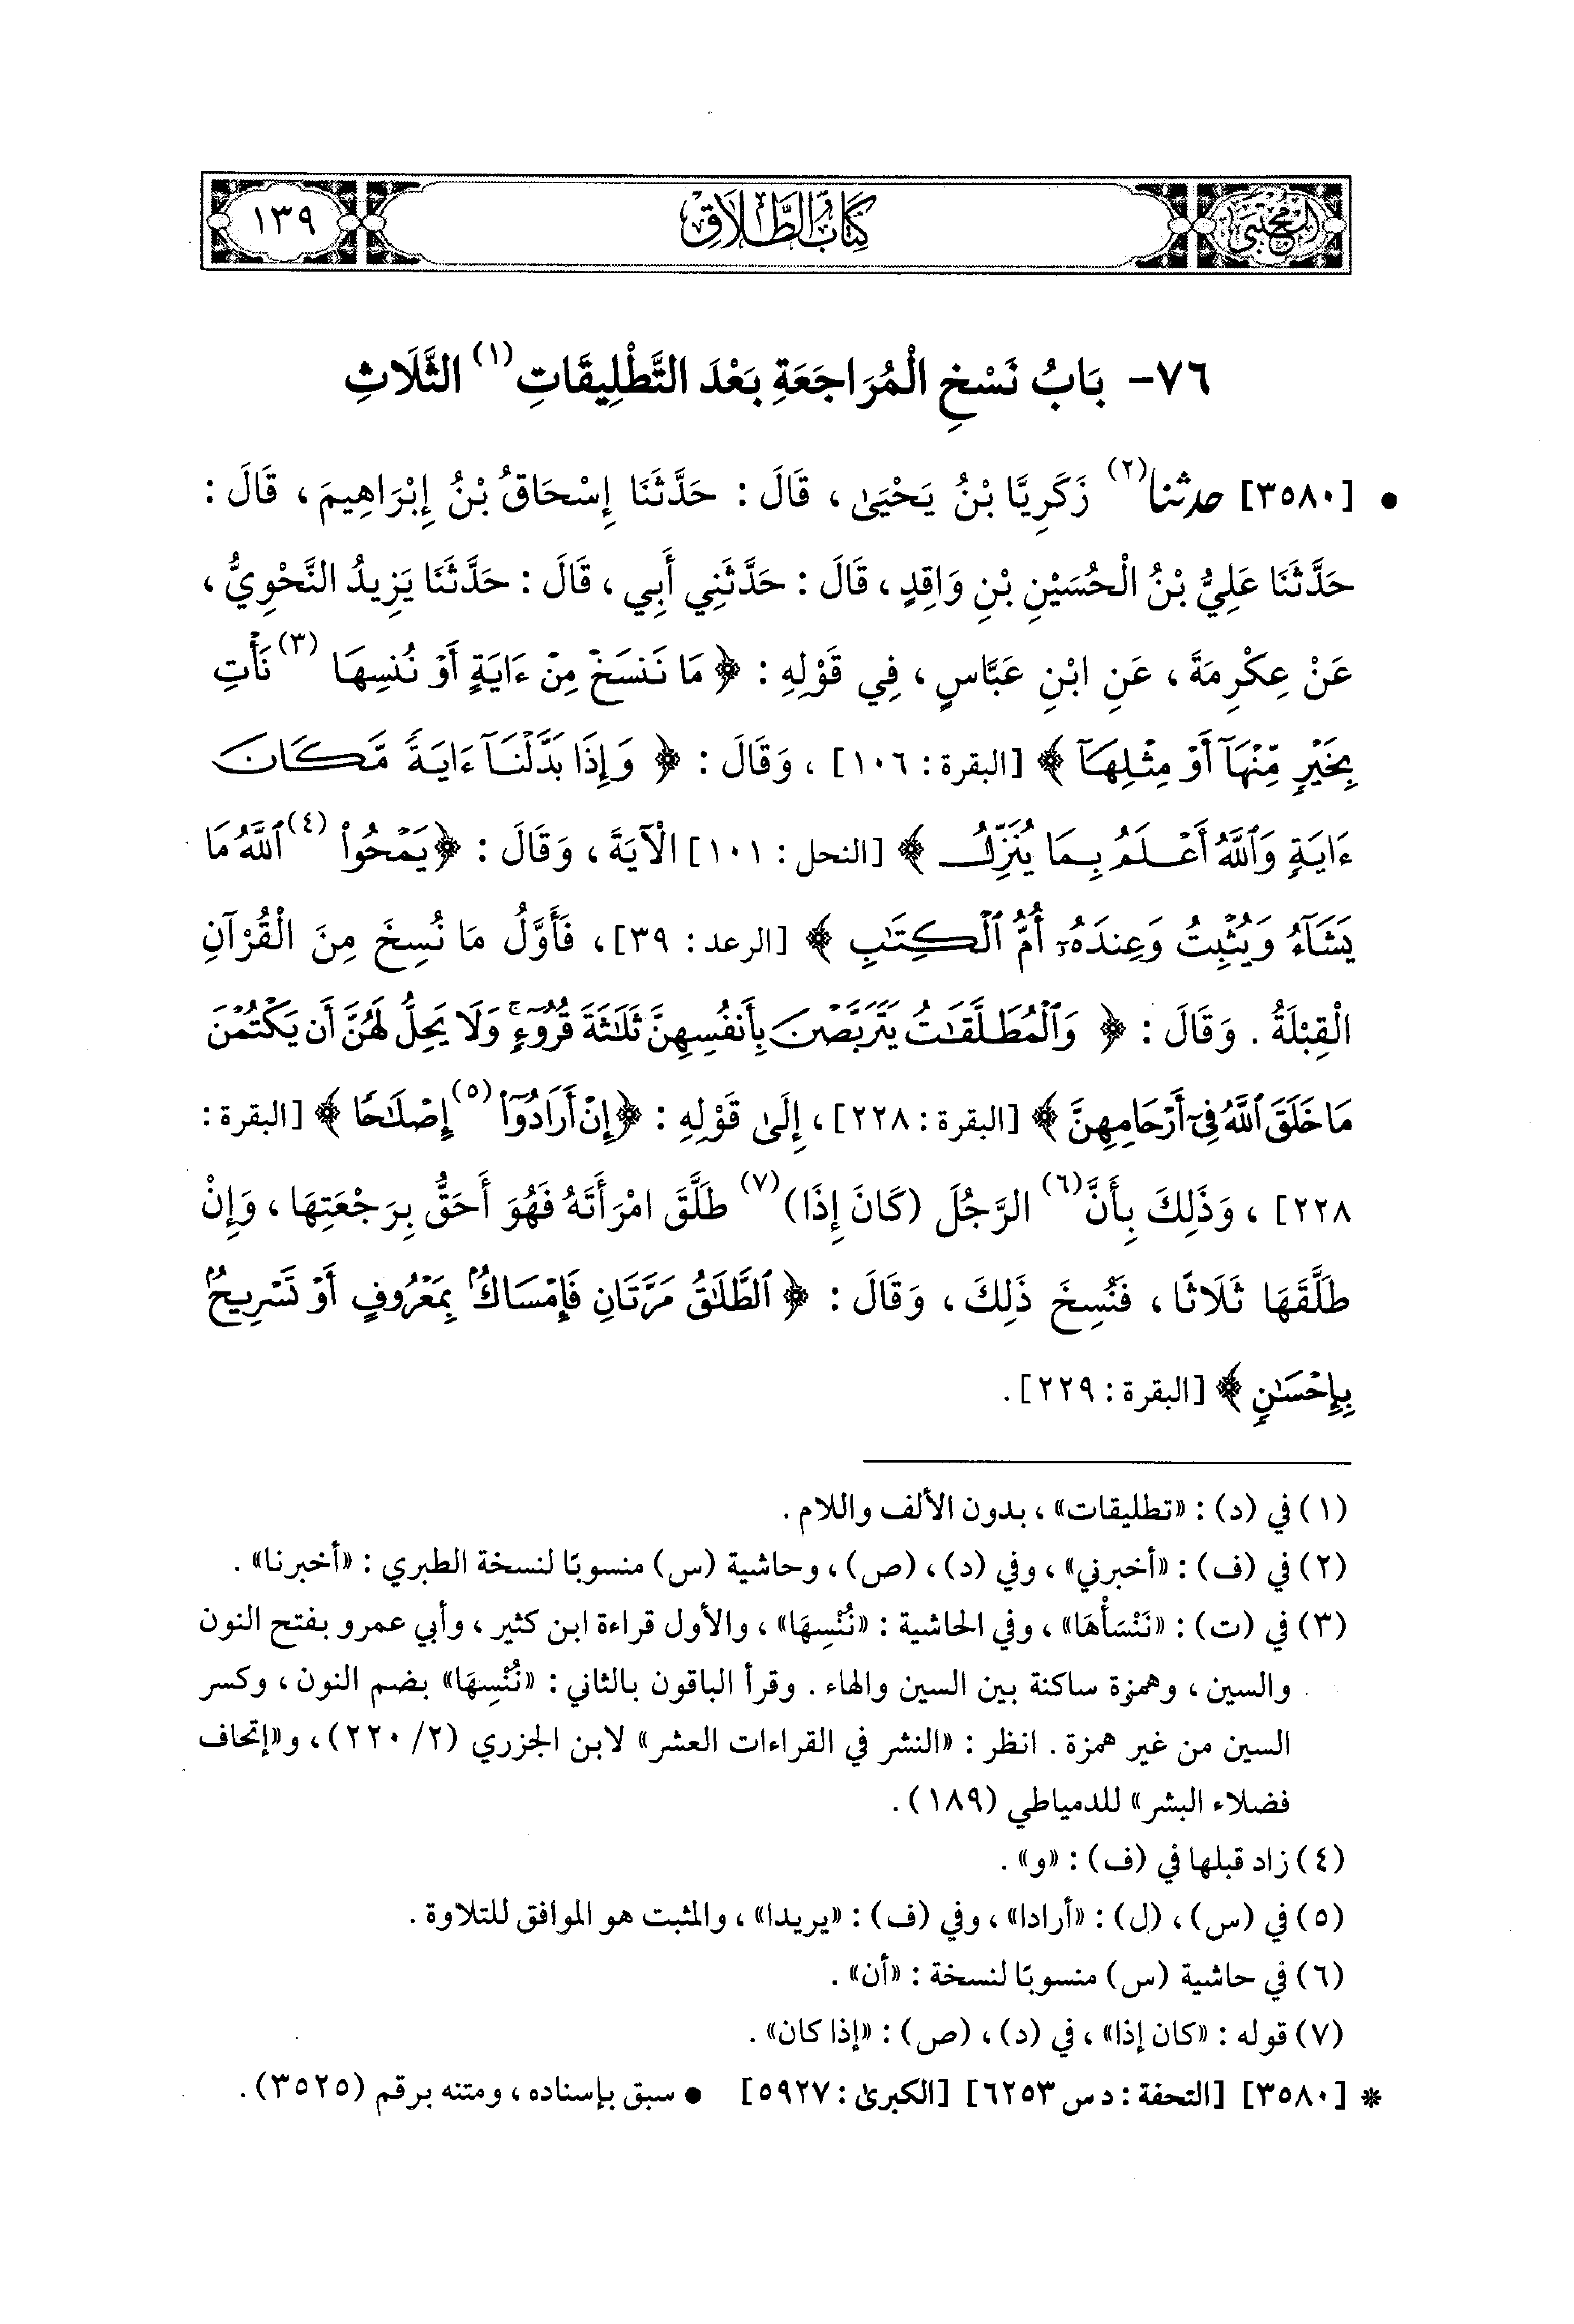 المجتبى
كِتَابُ الطَّلَاقِ
١٣٩
٧٦- بَابُ نَسْخِ الْمُرَاجَعَةِ بَعْدَ التَّطْلِيقَاتِ(١) الثَّلَاثِ
• [٣٥٨٠] حدثنا(٢) زَكَرِيَّا بْنُ يَحْيَىٰ، قَالَ: حَدَّثَنَا إِسْحَاقُ بْنُ إِبْرَاهِيمَ، قَالَ:
حَدَّثَنَا عَلِيُّ بْنُ الْحُسَيْنِ بْنِ وَاقِدٍ، قَالَ: حَدَّثَنِي أَبِي، قَالَ: حَدَّثَنَا يَزِيدُ النَّحْوِيُّ،
عَنْ عِكْرِمَةَ، عَنِ ابْنِ عَبَّاسٍ، فِي قَوْلِهِ: ﴿ مَا نَنسَخْ مِنْ ءَايَةٍ أَوْ نُنسِهَا (٣) نَأْتِ
بِخَيْرٍ مِّنْهَآ أَوْ مِثْلِهَآ ﴾ [البقرة: ١٠٦]، وَقَالَ: ﴿ وَإِذَا بَدَّلْنَآ ءَايَةً مَّكَانَ
ءَايَةٍ وَٱللَّهُ أَعْلَمُ بِمَا يُنَزِّلُ ﴾ [النحل: ١٠١] الْآيَةَ، وَقَالَ: ﴿ يَمْحُواْ (٤) ٱللَّهُ مَا
يَشَآءُ وَيُثْبِتُ وَعِندَهُۥٓ أُمُّ ٱلْكِتَٰبِ ﴾ [الرعد: ٣٩]، فَأَوَّلُ مَا نُسِخَ مِنَ الْقُرْآنِ
الْقِبْلَةُ. وَقَالَ: ﴿ وَٱلْمُطَلَّقَٰتُ يَتَرَبَّصْنَ بِأَنفُسِهِنَّ ثَلَٰثَةَ قُرُوٓءٍ ۚ وَلَا يَحِلُّ لَهُنَّ أَن يَكْتُمْنَ
مَا خَلَقَ ٱللَّهُ فِىٓ أَرْحَامِهِنَّ ﴾ [البقرة: ٢٢٨]، إِلَىٰ قَوْلِهِ: ﴿ إِنْ أَرَادُوٓاْ (٥) إِصْلَٰحًا ﴾ [البقرة:
٢٢٨]، وَذَلِكَ بِأَنَّ(٦) الرَّجُلَ (كَانَ إِذَا)(٧) طَلَّقَ امْرَأَتَهُ فَهُوَ أَحَقُّ بِرَجْعَتِهَا، وَإِنْ
طَلَّقَهَا ثَلَاثًا، فَنُسِخَ ذَلِكَ، وَقَالَ: ﴿ ٱلطَّلَٰقُ مَرَّتَانِ فَإِمْسَاكٌۢ بِمَعْرُوفٍ أَوْ تَسْرِيحٌۢ
بِإِحْسَٰنٍ ﴾ [البقرة: ٢٢٩].
(١) في (د): «تطليقات»، بدون الألف واللام.
(٢) في (ف): «أخبرني»، وفي (د)، (ص)، وحاشية (س) منسوبًا لنسخة الطبري: «أخبرنا».
(٣) في (ت): «نَنْسَأْهَا»، وفي الحاشية: «نُنْسِهَا»، والأول قراءة ابن كثير، وأبي عمرو بفتح النون
والسين، وهمزة ساكنة بين السين والهاء. وقرأ الباقون بالثاني: «نُنْسِهَا» بضم النون، وكسر
السين من غير همزة. انظر: «النشر في القراءات العشر» لابن الجزري (٢/ ٢٢٠)، و«إتحاف
فضلاء البشر» للدمياطي (١٨٩).
(٤) زاد قبلها في (ف): «و».
(٥) في (س)، (ل): «أرادا»، وفي (ف): «يريدا»، والمثبت هو الموافق للتلاوة.
(٦) في حاشية (س) منسوبًا لنسخة: «أن».
(٧) قوله: «كان إذا»، في (د)، (ص): «إذا كان».
* [٣٥٨٠] [التحفة: د س ٦٢٥٣] [الكبرىٰ: ٥٩٢٧] • سبق بإسناده، ومتنه برقم (٣٥٢٥).